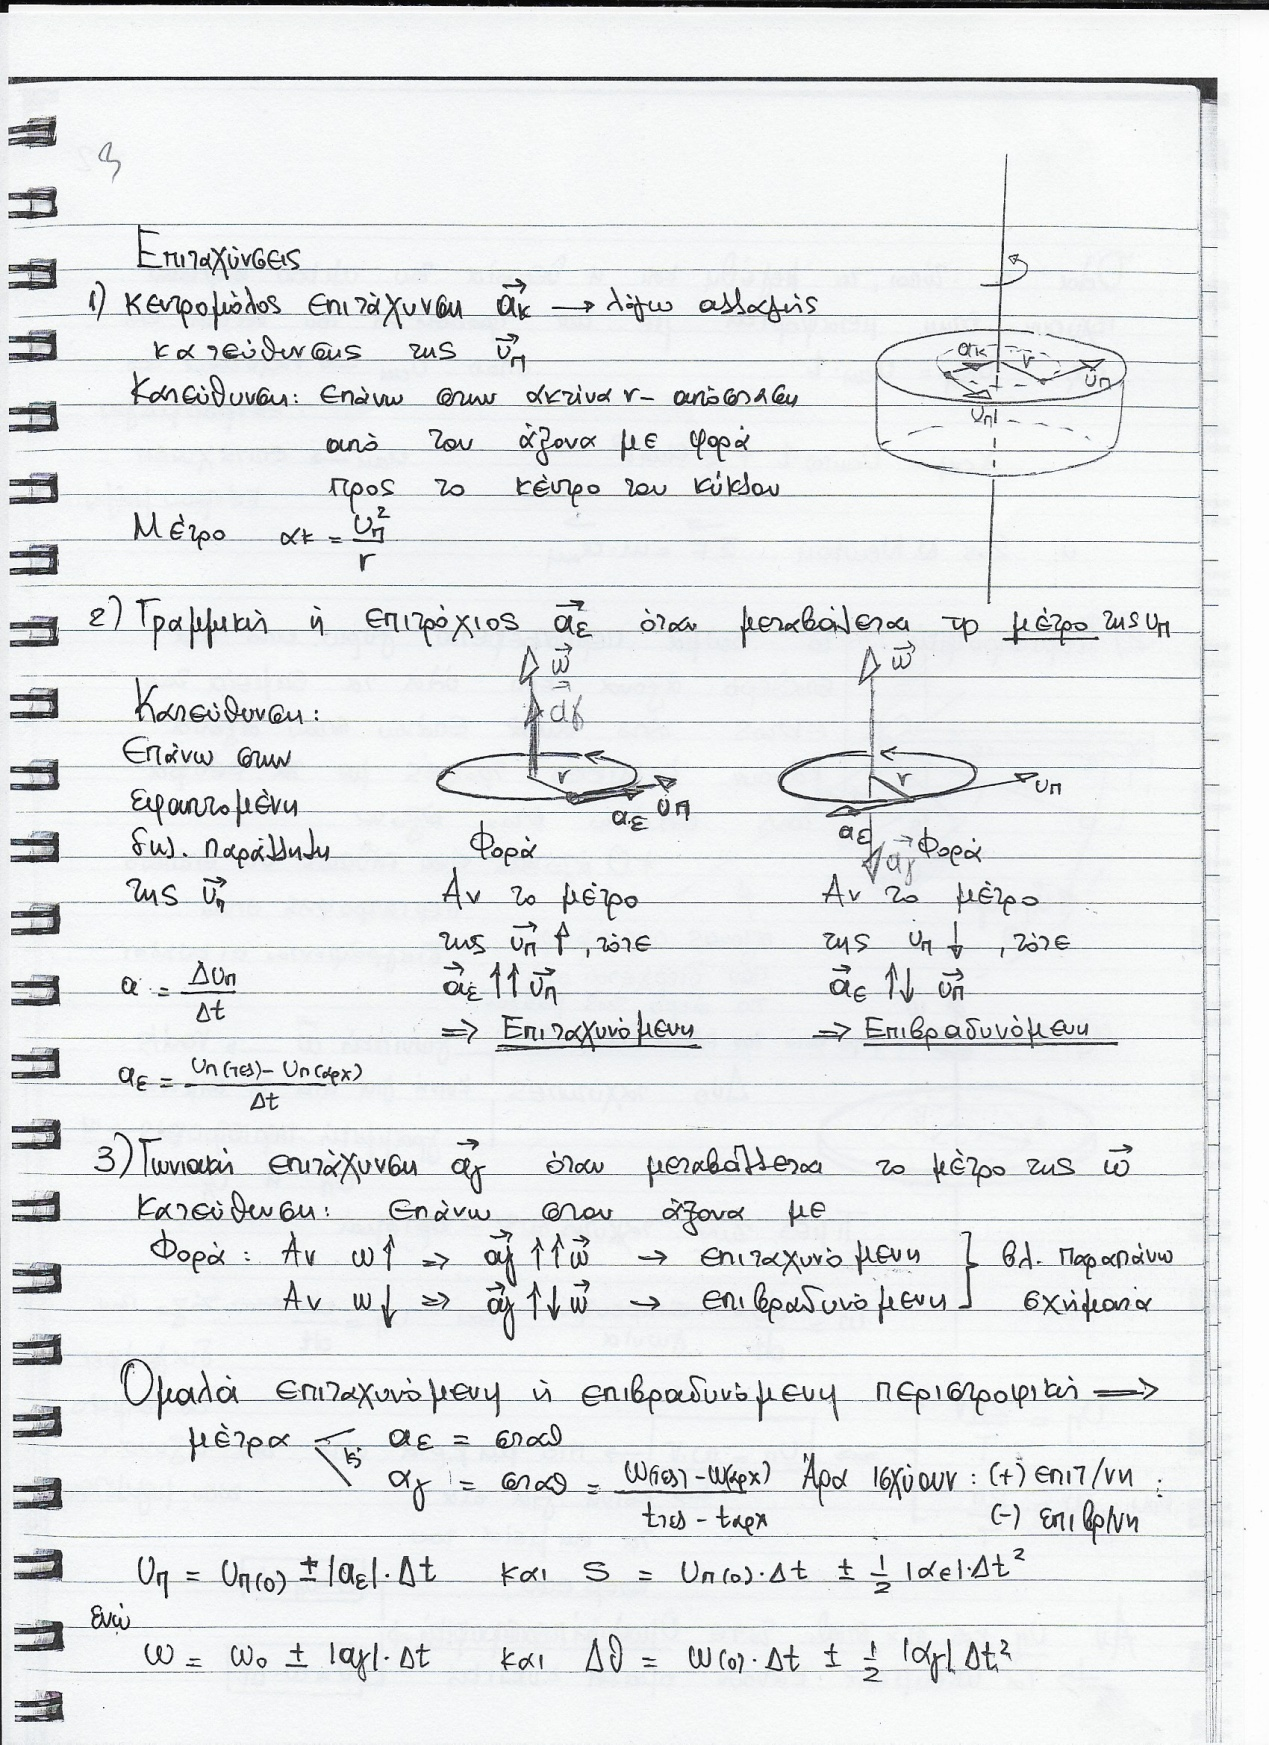 3
Επιταχύνσεις
1) Κεντρομόλος επιτάχυνση a⃗κ → λόγω αλλαγής
κατεύθυνσης της υ⃗π
Κατεύθυνση: επάνω στην ακτίνα r - απόσταση
από τον άξονα με φορά
προς το κέντρο του κύκλου
Μέτρο ακ = υπ²/r
ακ r υπ
υπ
2) Γραμμική ή επιτρόχιος a⃗ε όταν μεταβάλλεται το μέτρο της υπ
ω⃗ ω⃗
a⃗γ
Κατεύθυνση:
επάνω στην
εφαπτομένη
δηλ. παράλληλη
της υ⃗π
r υπ aε
r υπ aε a⃗γ
a = Δυπ/Δt
aε = (υπ(τελ) - υπ(αρχ))/Δt
Φορά
Αν το μέτρο
της υ⃗π ↑, τότε
a⃗ε ↑↑ υ⃗π
=> Επιταχυνόμενη
Φορά
Αν το μέτρο
της υπ ↓, τότε
a⃗ε ↑↓ υ⃗π
=> Επιβραδυνόμενη
3) Γωνιακή επιτάχυνση a⃗γ όταν μεταβάλλεται το μέτρο της ω⃗
Κατεύθυνση: επάνω στον άξονα με
Φορά: Αν ω↑ => a⃗γ ↑↑ ω⃗ → επιταχυνόμενη } βλ. παραπάνω
Αν ω↓ => a⃗γ ↑↓ ω⃗ → επιβραδυνόμενη } σχήματα
Ομαλά επιταχυνόμενη ή επιβραδυνόμενη περιστροφική =>
μέτρα aε = σταθ
αγ = σταθ = (ω(τελ) - ω(αρχ))/(tτελ - tαρχ) Άρα ισχύουν: (+) επιτ/νη :
(-) επιβρ/νη
υπ = υπ(0) ± |aε|·Δt και S = υπ(0)·Δt ± 1/2 |αε|·Δt²
ενώ
ω = ω₀ ± |αγ|·Δt και Δθ = ω(0)·Δt ± 1/2 |αγ|·Δt²